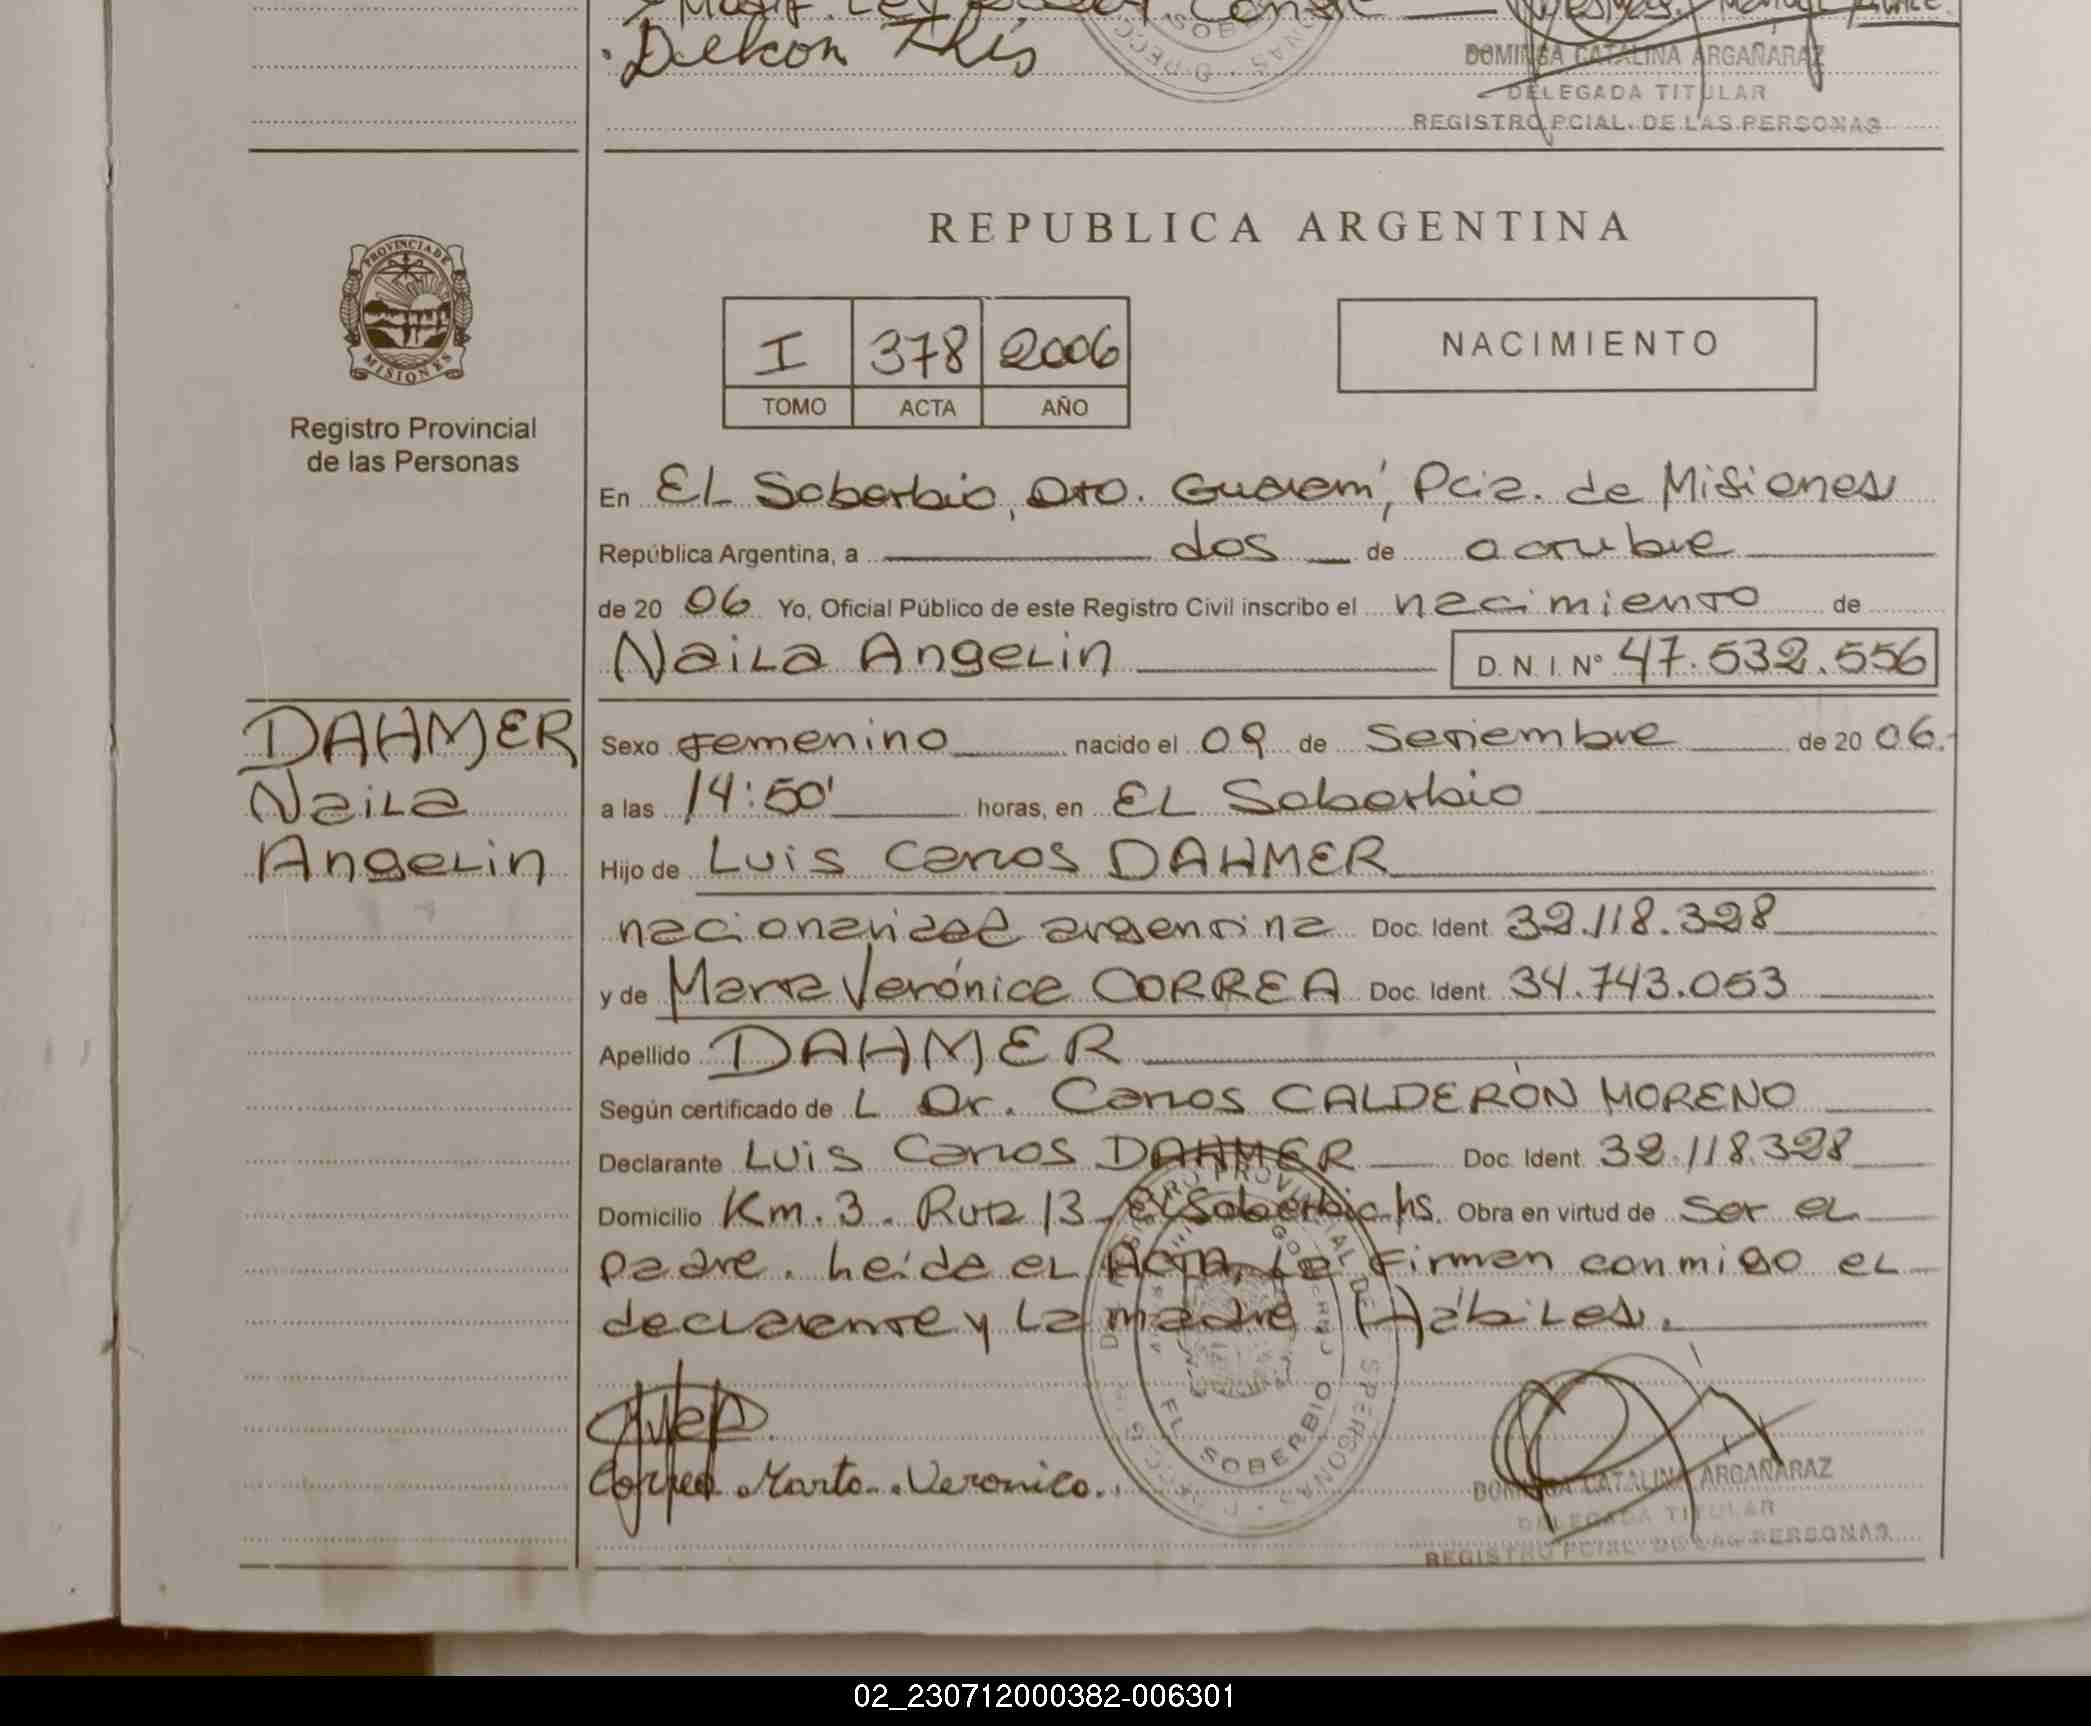 Delcon This
DOMINGA CATALINA ARGAÑARAZ
DELEGADA TITULAR
REGISTRO PCIAL. DE LAS PERSONAS
PROVINCIA DE
MISIONES
Registro Provincial
de las Personas
REPUBLICA ARGENTINA
I 378 2006
TOMO ACTA AÑO
NACIMIENTO
En EL Soberbio, Dto. Guaraní, Pcia. de Misiones
República Argentina, a dos de octubre
de 20 06 Yo, Oficial Público de este Registro Civil inscribo el nacimiento de
Naila Angelin D. N. I. N° 47.532.556
DAHMER
Naila
Angelin
Sexo femenino nacido el 09 de Setiembre de 20 06.
a las 14:50' horas, en EL Soberbio
Hijo de Luis Carlos DAHMER
nacionalidad argentina Doc. Ident. 32.118.328
y de Marta Verónica CORREA Doc. Ident. 34.743.053
Apellido DAHMER
Según certificado de L Dr. Carlos CALDERÓN MORENO
Declarante Luis Carlos DAHMER Doc. Ident. 32.118.328
Domicilio Km. 3. Ruta 13 El Soberbio Obra en virtud de ser el
padre. Leída el ACTA, La firman conmigo el
declarante y La madre Hábiles.
Correa Marta Veronica.
EL SOBERBIO
DOMINGA CATALINA ARGAÑARAZ
DELEGADA TITULAR
REGISTRO PCIAL. DE LAS PERSONAS
02_230712000382-006301